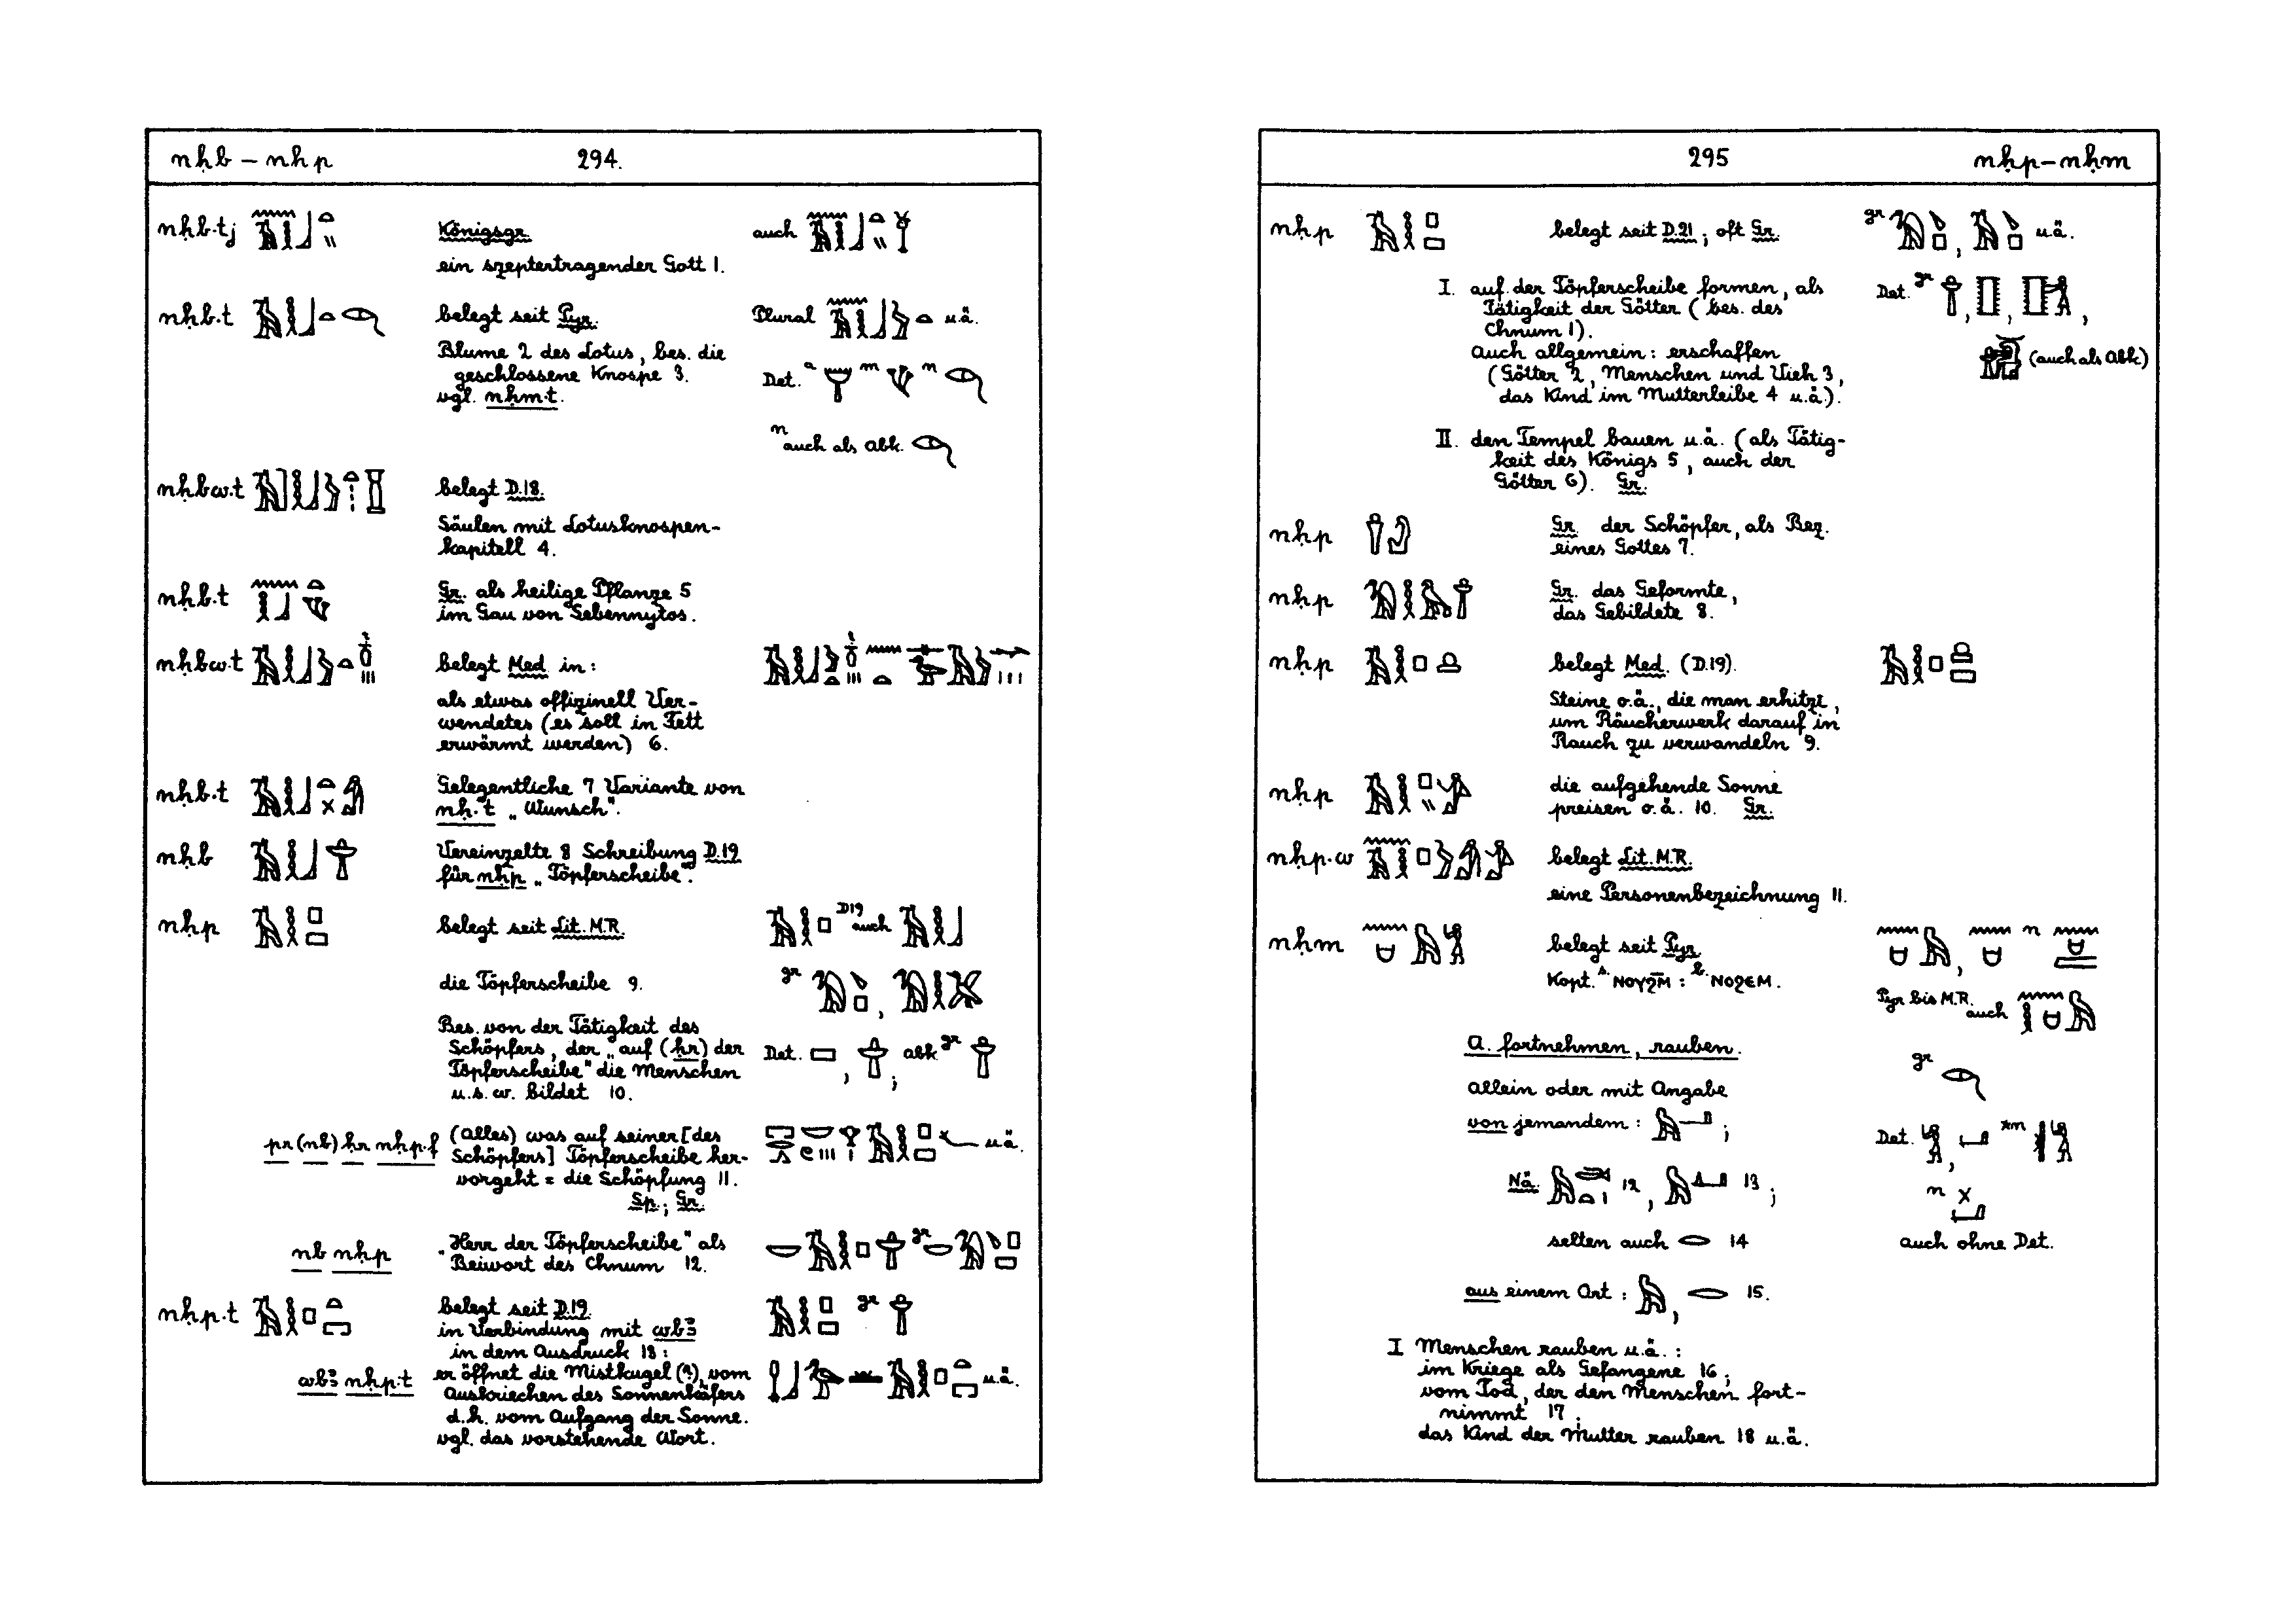 nḥb – nḥp 294.
nḥb·tj Königsgr. auch
ein szeptertragender Gott 1.
nḥb·t belegt seit Pyr. Plural u.ä.
Blume 2 des Lotus, bes. die
geschlossene Knospe 3. Det. a m n
vgl. nḥm·t.
n auch als Abk.
nḥbw·t belegt D.18.
Säulen mit Lotusknospen-
kapitell 4.
nḥb·t Gr. als heilige Pflanze 5
im Gau von Sebennytos.
nḥbw·t belegt Med in:
als etwas offizinell Ver-
wendetes (es soll in Fett
erwärmt werden) 6.
nḥb·t Gelegentliche 7 Variante von
nḥ·t „Wunsch".
nḥb Vereinzelte 8 Schreibung D.19
für nḥp „Töpferscheibe".
nḥp belegt seit Lit. M.R. D19 auch
die Töpferscheibe 9. gr ,
Bes. von der Tätigkeit des
Schöpfers, der „auf (ḥr) der Det. , ; abk gr
Töpferscheibe" die Menschen
u.s.w. bildet 10.
pr (nb) ḥr nḥp·f (Alles) was auf seiner [des u.ä.
Schöpfers] Töpferscheibe her-
vorgeht = die Schöpfung 11.
Sp.; Gr.
nb nḥp „Herr der Töpferscheibe" als gr
Beiwort des Chnum 12.
nḥp·t belegt seit D.19 gr
in Verbindung mit wbꜣ
in dem Ausdruck 13:
wbꜣ nḥp·t er öffnet die Mistkugel (?), vom u.ä.
Auskriechen des Sonnenkäfers
d.h. vom Aufgang der Sonne.
vgl. das vorstehende Wort.
295 nḥp – nḥm
nḥp belegt seit D.21; oft Gr. gr , u.ä.
I. auf der Töpferscheibe formen, als Det. gr , , ,
Tätigkeit der Götter (bes. des
Chnum 1).
Auch allgemein: erschaffen (auch als Abk)
(Götter 2, Menschen und Vieh 3,
das Kind im Mutterleibe 4 u.ä.).
II. den Tempel bauen u.ä. (als Tätig-
keit des Königs 5, auch der
Götter 6). Gr.
nḥp Gr. der Schöpfer, als Bez.
eines Gottes 7.
nḥp Gr. das Geformte,
das Gebildete 8.
nḥp belegt Med. (D.19).
Steine o.ä., die man erhitzt,
um Räucherwerk darauf in
Rauch zu verwandeln 9.
nḥp die aufgehende Sonne
preisen o.ä. 10. Gr.
nḥp·w belegt Lit. M.R.
eine Personenbezeichnung 11.
nḥm belegt seit Pyr. , n
Kopt. s. ⲛⲟⲩϩⲙ̄ : b. ⲛⲟϩⲉⲙ.
Pyr bis M.R. auch
A. fortnehmen, rauben. gr
allein oder mit Angabe
von jemandem : ; Det. , *m
Nä. 12, 13; n
selten auch 14 auch ohne Det.
aus einem Ort : , 15.
I Menschen rauben u.ä. :
im Kriege als Gefangene 16;
vom Tod, der den Menschen fort-
nimmt 17.
das Kind der Mutter rauben 18 u.ä.